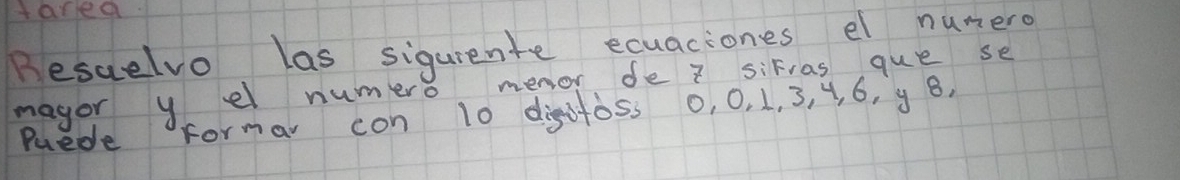 tarea
Resuelvo las siguiente ecuaciones el numero
mayor y el numero menor de 7 sifras que se
Puede Formar con 10 digitos: 0, 0, 1, 3, 4, 6, y 8,